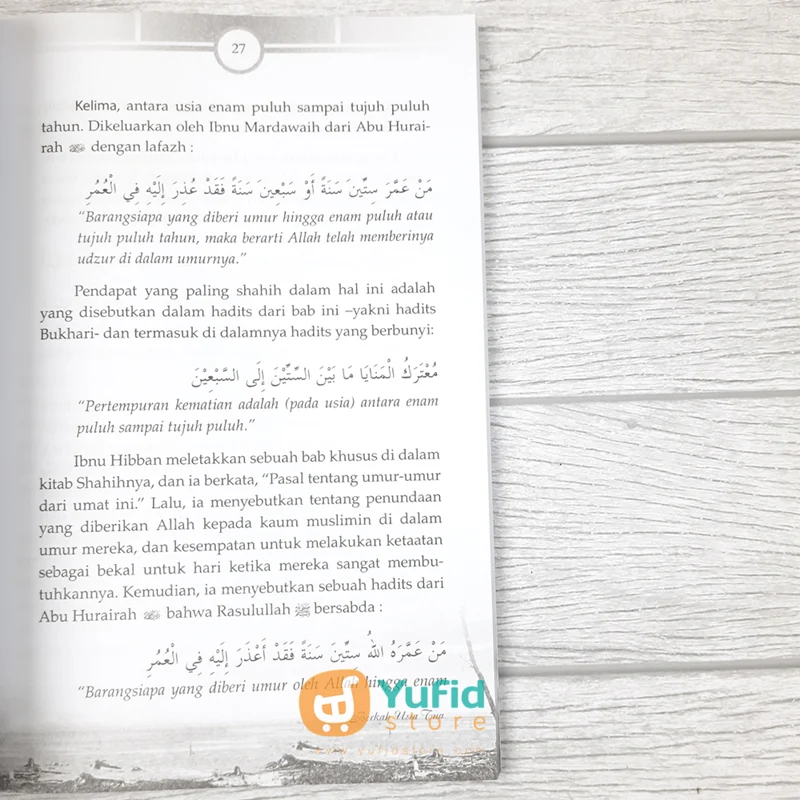 27
Kelima, antara usia enam puluh sampai tujuh puluh
tahun. Dikeluarkan oleh Ibnu Mardawaih dari Abu Hurai-
rah dengan lafazh :
مَنْ عَمَّرَ سِتِّينَ سَنَةً أَوْ سَبْعِينَ سَنَةً فَقَدْ عُذِرَ إِلَيْهِ فِي الْعُمُرِ
“Barangsiapa yang diberi umur hingga enam puluh atau
tujuh puluh tahun, maka berarti Allah telah memberinya
udzur di dalam umurnya.”
Pendapat yang paling shahih dalam hal ini adalah
yang disebutkan dalam hadits dari bab ini –yakni hadits
Bukhari- dan termasuk di dalamnya hadits yang berbunyi:
مُعْتَرَكُ الْمَنَايَا مَا بَيْنَ السِّتِّيْنَ إِلَى السَّبْعِيْنَ
“Pertempuran kematian adalah (pada usia) antara enam
puluh sampai tujuh puluh.”
Ibnu Hibban meletakkan sebuah bab khusus di dalam
kitab Shahihnya, dan ia berkata, “Pasal tentang umur-umur
dari umat ini.” Lalu, ia menyebutkan tentang penundaan
yang diberikan Allah kepada kaum muslimin di dalam
umur mereka, dan kesempatan untuk melakukan ketaatan
sebagai bekal untuk hari ketika mereka sangat membu-
tuhkannya. Kemudian, ia menyebutkan sebuah hadits dari
Abu Hurairah bahwa Rasulullah ﷺ bersabda :
مَنْ عَمَّرَهُ اللهُ سِتِّينَ سَنَةً فَقَدْ أَعْذَرَ إِلَيْهِ فِي الْعُمُرِ
“Barangsiapa yang diberi umur oleh Allah hingga enam
Berkah Usia Tua
Yufid
store
www.yufidstore.com